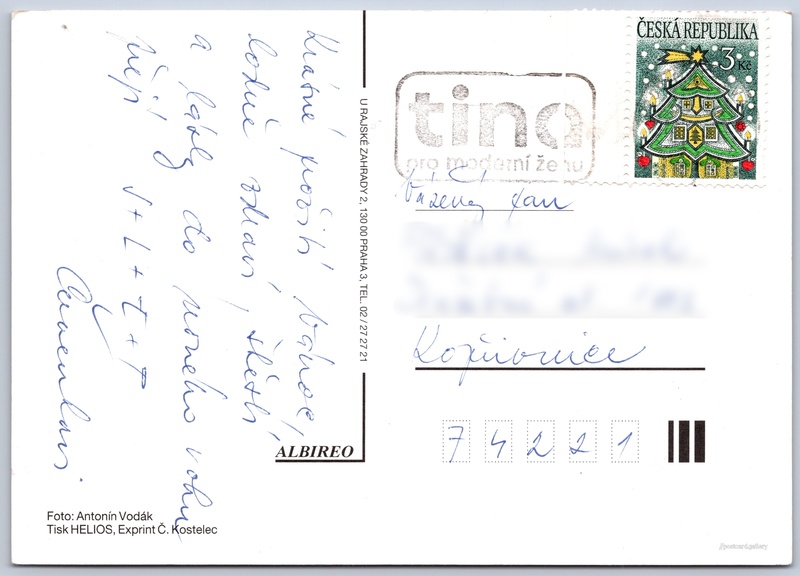 Krásné prožití Vánoc,
hodně zdraví, štěstí
a lásky do nového roku
přejí J+L+L+T
U RAJSKÉ ZAHRADY 2, 130 00 PRAHA 3, TEL. 02/27 27 21
ALBIREO
Foto: Antonín Vodák
Tisk HELIOS, Exprint Č. Kostelec
ČESKÁ REPUBLIKA
3 Kč
tina
pro moderní ženu
Vážený pan
Kopřivnice
74221